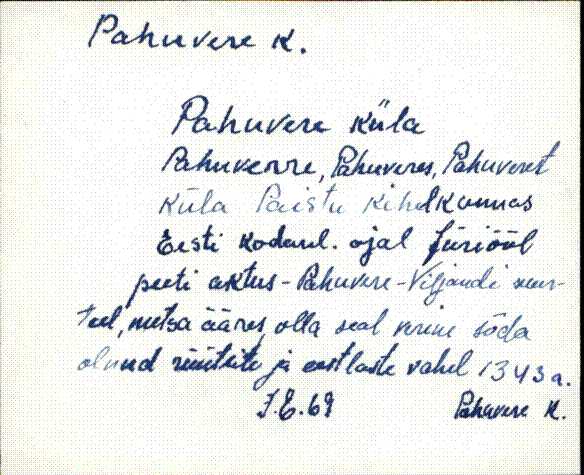 Pahuvere K.
Pahuvere Küla
Pahuverre, Pahuveres, Pahuverest
Küla Paistu kihelkonnas
Eesti kodanl. ajal jüriööl
peeti aktus - Pahuvere - Viljandi suur-
teel, metsa ääres, olla seal verine sõda
olnud rüütlite ja eestlaste vahel 1343 a.
J.E.69 Pahuvere K.